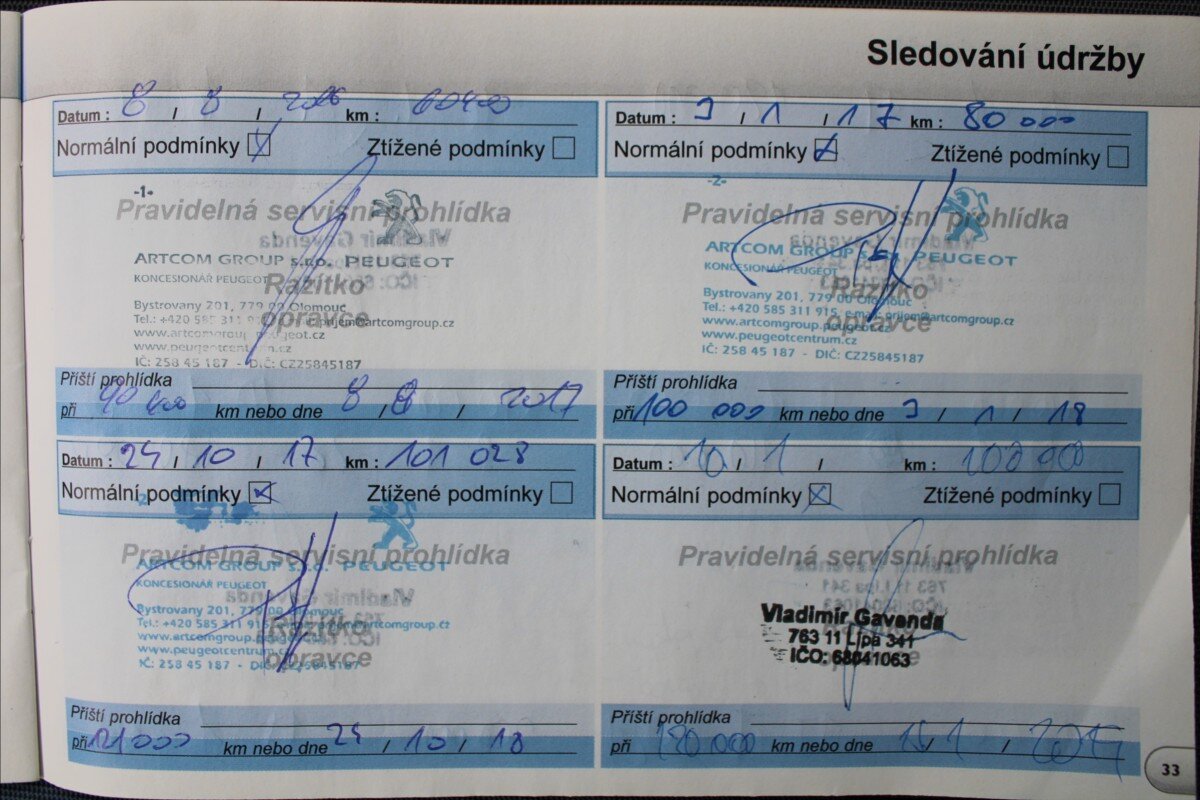 Sledování údržby
Datum : 8 / 8 / 2016 km :
Normální podmínky Ztížené podmínky
-1-
Pravidelná servisní prohlídka
Vladimír Gavenda
ARTCOM GROUP s.r.o. PEUGEOT
KONCESIONÁŘ PEUGEOT
Razítko
opravce
Bystrovany 201, 779 00 Olomouc
Tel.: +420 585 311 prijem@artcomgroup.cz
www.artcomgroup.peugeot.cz
www.peugeotcentrum.cz
IČ: 258 45 187 - DIČ: CZ25845187
Příští prohlídka
při km nebo dne 8 / 8 / 2017
Datum : 3 / 1 / 17 km : 80 000
Normální podmínky Ztížené podmínky
-2-
Pravidelná servisní prohlídka
ARTCOM GROUP s.r.o. PEUGEOT
KONCESIONÁŘ PEUGEOT
Razítko
opravce
Bystrovany 201, 779 00 Olomouc
Tel.: +420 585 311 915, e-mail: prijem@artcomgroup.cz
www.artcomgroup.peugeot.cz
www.peugeotcentrum.cz
IČ: 258 45 187 - DIČ: CZ25845187
Příští prohlídka
při 100 000 km nebo dne 3 / 1 / 18
Datum : 24 / 10 / 17 km : 101 028
Normální podmínky Ztížené podmínky
Pravidelná servisní prohlídka
ARTCOM GROUP s.r.o. PEUGEOT
KONCESIONÁŘ PEUGEOT
Bystrovany 201, 779 00 Olomouc
Tel.: +420 585 311 915, prijem@artcomgroup.cz
Razítko
www.artcomgroup.peugeot.cz
www.peugeotcentrum.cz
opravce
IČ: 258 45 187 - DIČ: CZ25845187
Příští prohlídka
při 121 000 km nebo dne 24 / 10 / 18
Datum : 10 / 1 / km :
Normální podmínky Ztížené podmínky
Pravidelná servisní prohlídka
Vladimír Gavenda
763 11 Lípa 341
IČO: 68041063
Příští prohlídka
při km nebo dne / 1 /
33